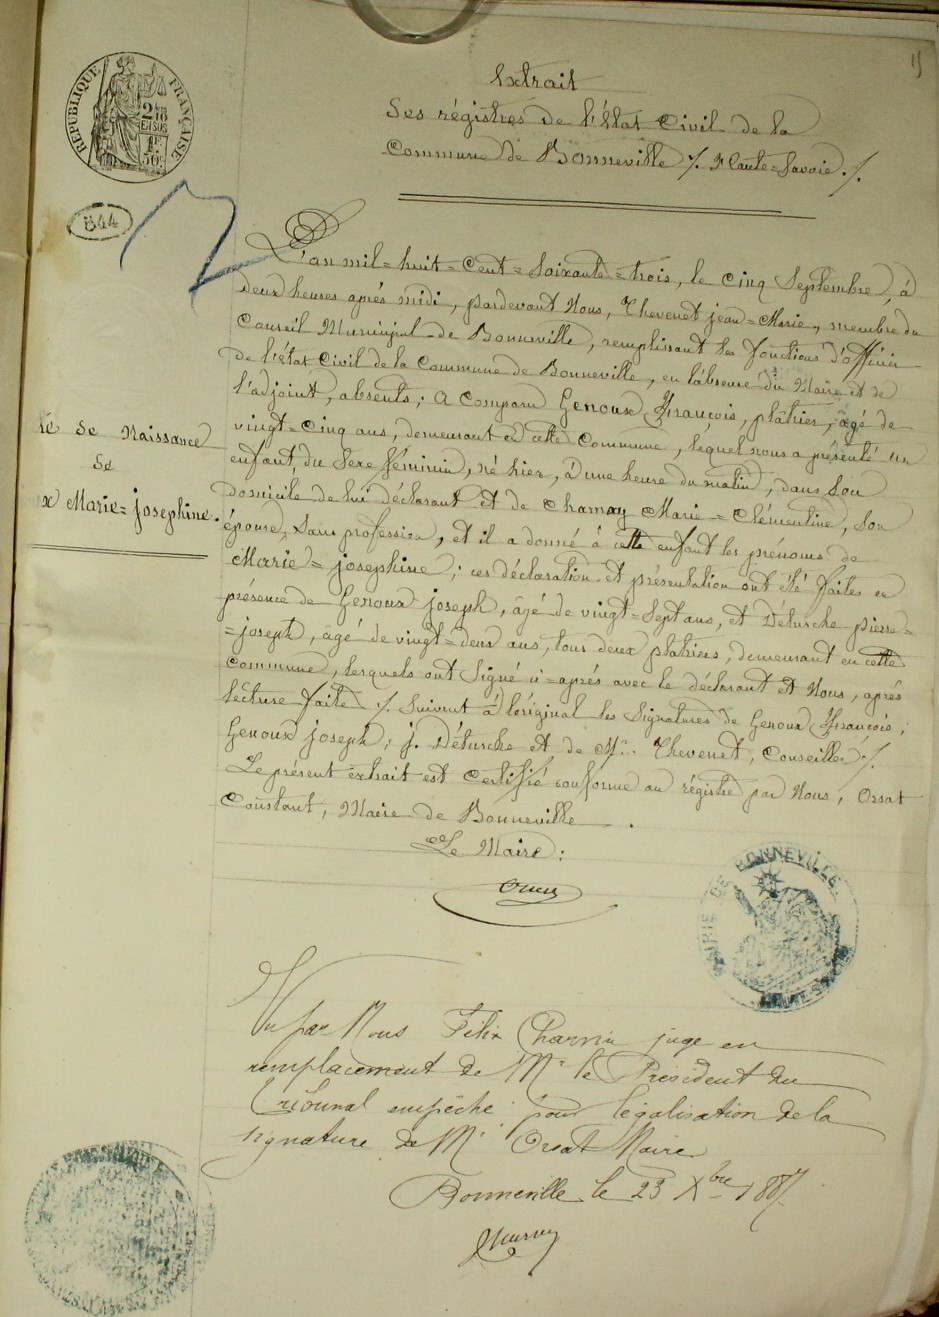 15
Extrait
Des régistres de l'état Civil de la
Commune de Bonneville /. Haute=Savoie ./.
RÉPUBLIQUE FRANÇAISE
2/10ES
EN SUS
1F
50C
844
L'an mil=huit=Cent=Soixante=trois, le Cinq Septembre, à
deux heures après midi, pardevant Nous, Thevenet jean=Marie, membre du
Conseil Municipal de Bonneville, remplissant les fonctions d'officier
de l'état Civil de la Commune de Bonneville, en l'absence du Maire et de
l'adjoint, absents; A Comparu Genoux François, plâtrier, âgé de
vingt=Cinq ans, demeurant en cette Commune, lequel nous a présenté un
enfant du Sexe féminin, né hier, à une heure du matin, dans Son
domicile de lui déclarant et de Charnay Marie=Clémentine, Son
épouse, Sans profession, et il a donné à cette enfant les prénoms de
Marie=josephine; ces déclaration et présentation ont été faites en
présence de Genoux joseph, âgé de vingt=Sept ans, et Déturche pierre=
=joseph, âgé de vingt=deux ans, tous deux plâtriers, demeurant en cette
Commune, lesquels ont Signé ci=après avec le déclarant et Nous, après
lecture faite ./. Suivent à l'original les Signatures de Genoux François;
Genoux joseph; j. Déturche et de Mr. Thevenet, Conseiller ./.
Le présent extrait est Certifié conforme au régistre par Nous, Orsat
Constant, Maire de Bonneville.
Le Maire:
té de Naissance
de
ux Marie=josephine.
MAIRIE DE BONNEVILLE
Vu par Nous Félix Charvin juge en
remplacement de Mr le Président du
Tribunal empêché pour légalisation de la
signature de Mr Orsat Maire
Bonneville le 23 Xbre 1887